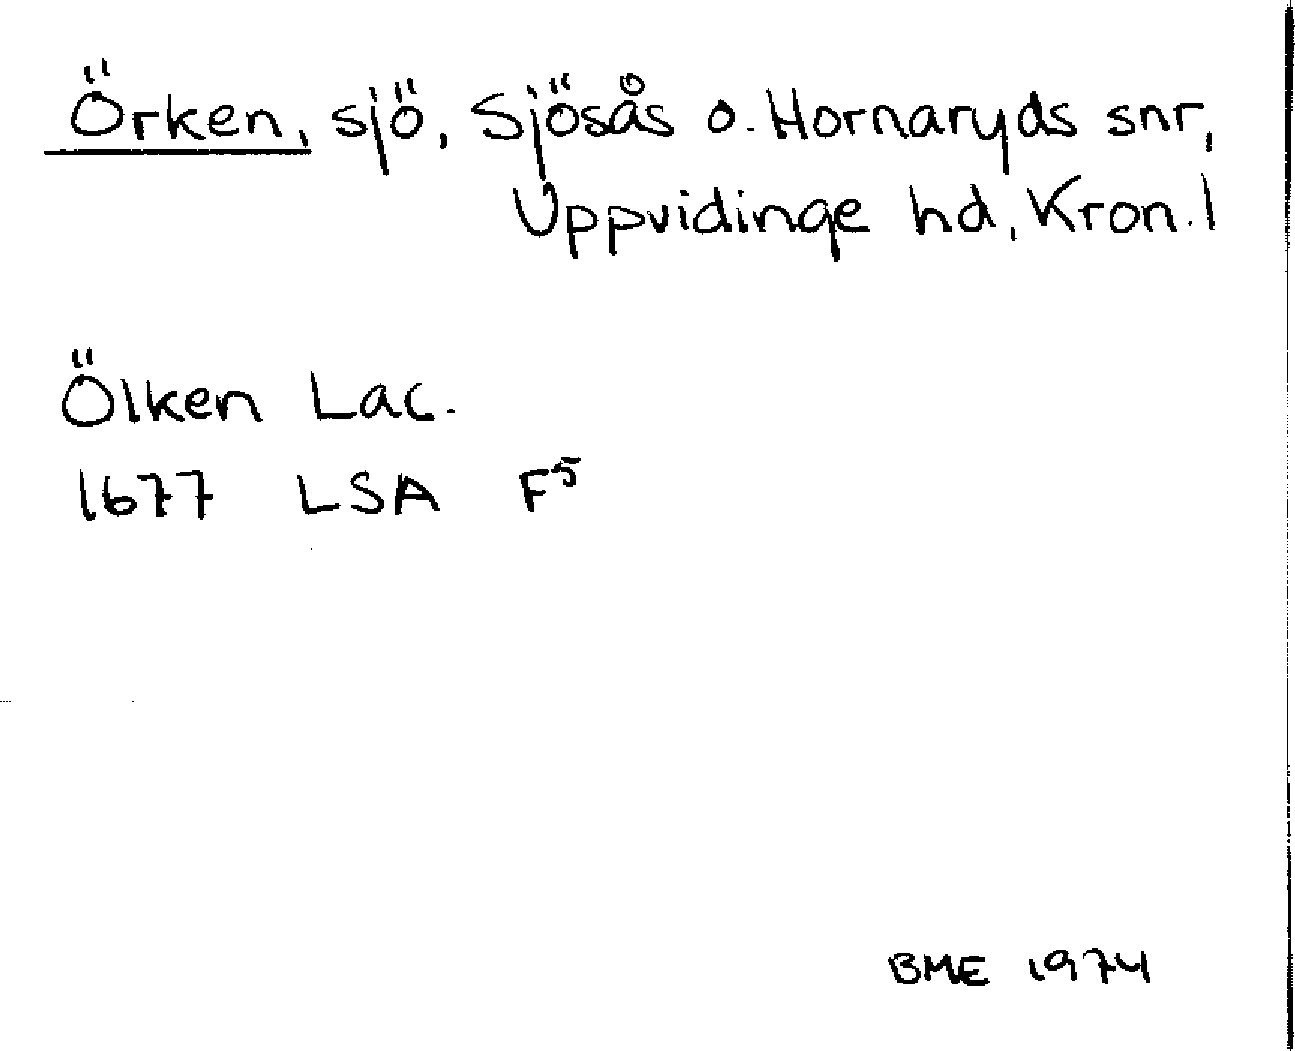 Örken, sjö, Sjösås o. Hornaryds snr,
Uppvidinge hd, Kron. l
Ölken Lac.
1677 LSA F⁵
BME 1974